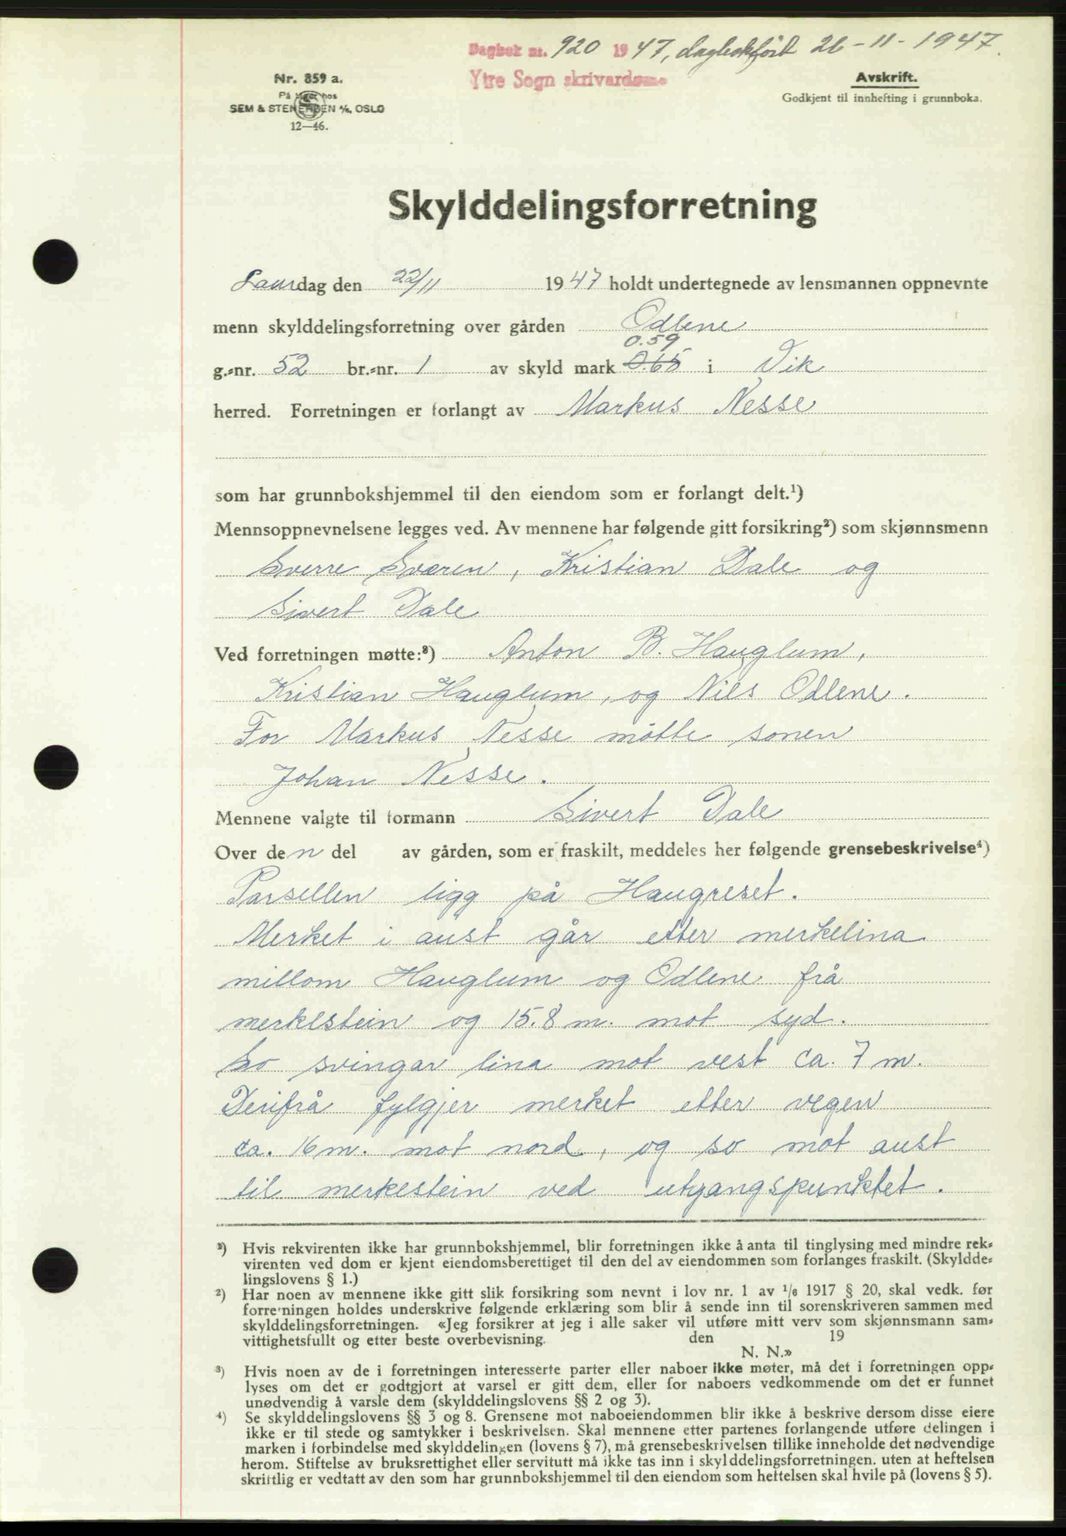 Dagbok nr. 920 1947, dagbokført 26-11-1947.
Ytre Sogn skrivardøme
Nr. 859 a.
På lager hos
SEM & STENERSEN A/S, OSLO
12—46.
Avskrift.
Godkjent til innhefting i grunnboka.
Skylddelingsforretning
Laurdag den 22/11 1947 holdt undertegnede av lensmannen oppnevnte
menn skylddelingsforretning over gården Odlene
0.59
g.-nr. 52 br.-nr. 1 av skyld mark 0.65 i Vik
herred. Forretningen er forlangt av Markus Nesse
som har grunnbokshjemmel til den eiendom som er forlangt delt.¹)
Mennsoppnevnelsene legges ved. Av mennene har følgende gitt forsikring²) som skjønnsmenn
Sverre Sværen, Kristian Dale og
Sivert Dale
Ved forretningen møtte:³) Anton B. Hauglum,
Kristian Hauglum, og Nils Odlene.
For Markus Nesse møtte sonen
Johan Nesse.
Mennene valgte til formann Sivert Dale
Over den del av gården, som er fraskilt, meddeles her følgende grensebeskrivelse⁴)
Parsellen ligg på Haugreset.
Merket i aust går etter merkelina
millom Hauglum og Odlene frå
merkestein og 15.8 m. mot syd.
So svingar lina mot vest ca. 7 m.
Derifrå fylgjer merket etter vegen
ca. 16 m. mot nord, og so mot aust
til merkestein ved utgangspunktet.
¹) Hvis rekvirenten ikke har grunnbokshjemmel, blir forretningen ikke å anta til tinglysing med mindre rek-
virenten ved dom er kjent eiendomsberettiget til den del av eiendommen som forlanges fraskilt. (Skyldde-
lingslovens § 1.)
²) Har noen av mennene ikke gitt slik forsikring som nevnt i lov nr. 1 av 1/6 1917 § 20, skal vedk. før
forretningen holdes underskrive følgende erklæring som blir å sende inn til sorenskriveren sammen med
skylddelingsforretningen. «Jeg forsikrer at jeg i alle saker vil utføre mitt verv som skjønnsmann sam-
vittighetsfullt og etter beste overbevisning. den 19
N. N.»
³) Hvis noen av de i forretningen interesserte parter eller naboer ikke møter, må det i forretningen opp-
lyses om det er godtgjort at varsel er gitt dem, eller for naboers vedkommende om det er funnet
unødvendig å varsle dem (skylddelingslovens §§ 2 og 3).
⁴) Se skylddelingslovens §§ 3 og 8. Grensene mot naboeiendommen blir ikke å beskrive dersom disse eiere
ikke er til stede og samtykker i beskrivelsen. Skal mennene etter partenes forlangende utføre delingen i
marken i forbindelse med skylddelingen (lovens § 7), må grensebeskrivelsen tillike inneholde det nødvendige
herom. Stiftelse av bruksrettighet eller servitutt må ikke tas inn i skylddelingsforretningen. uten at heftelsen
skriftlig er vedtatt av den som har grunnbokshjemmel til den eiendom som heftelsen skal hvile på (lovens § 5).